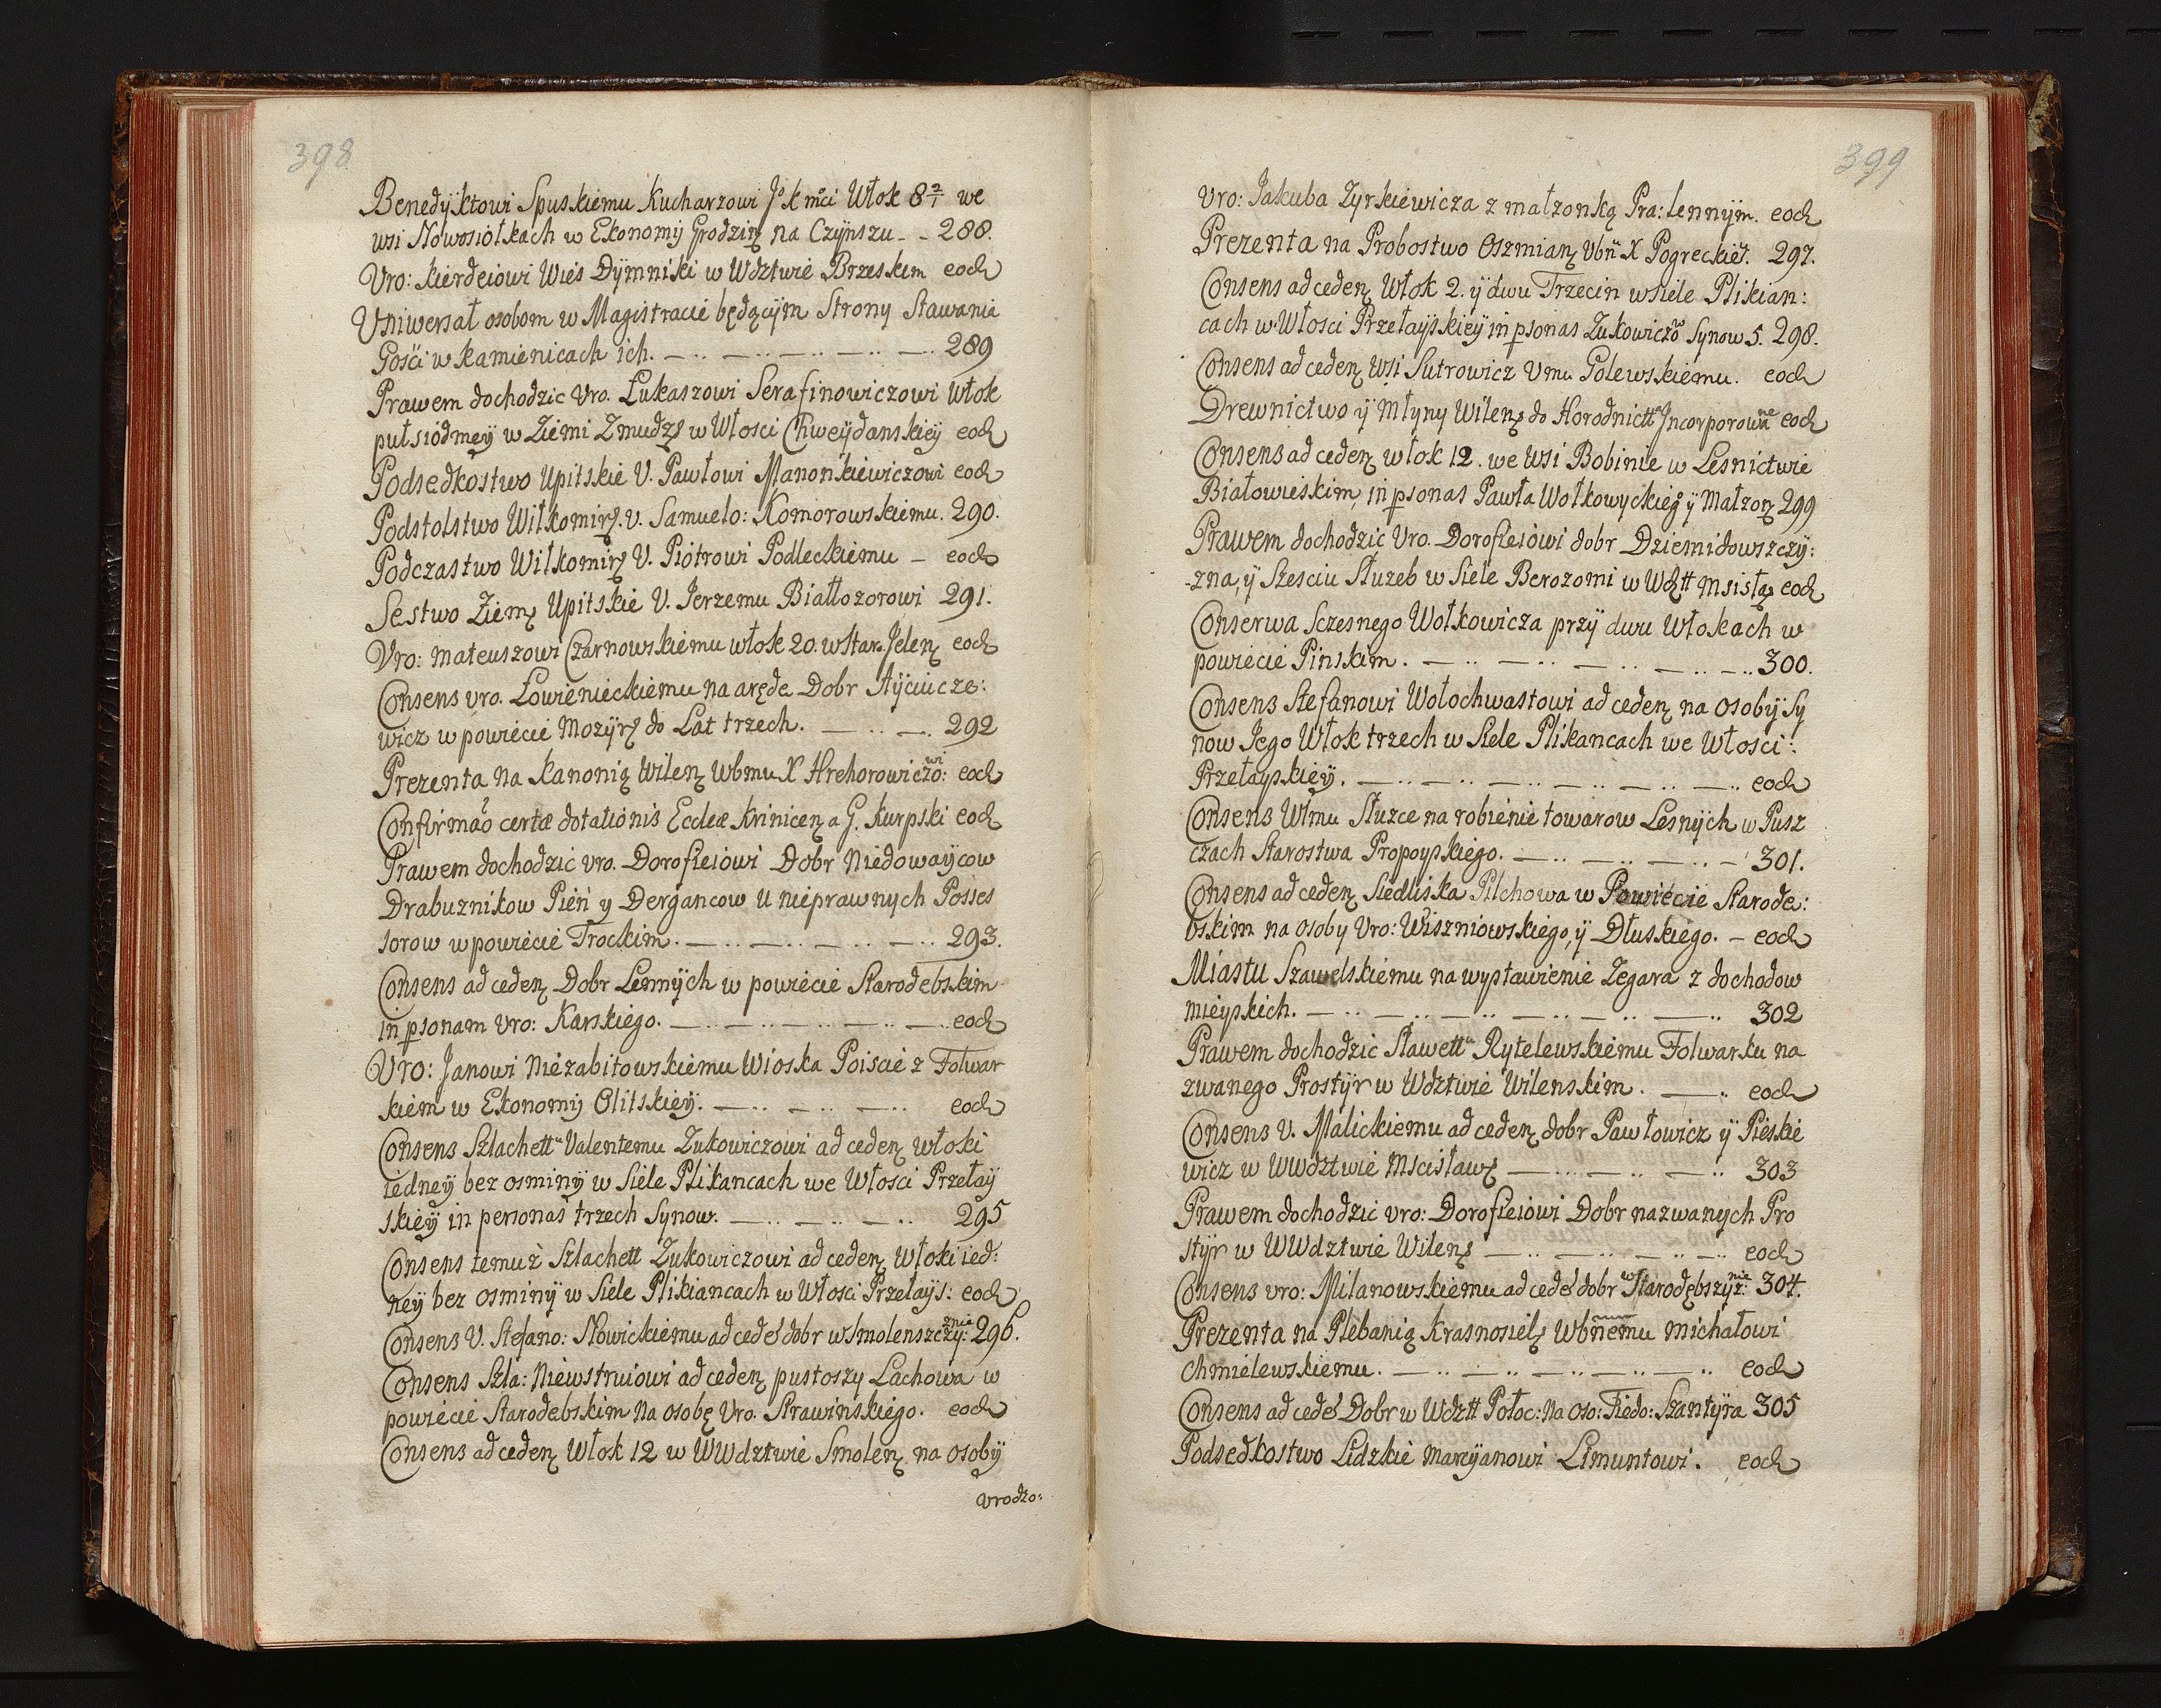 398
Benedyktowi Spuskiemu Kucharzowi Jo k mći Włok 8 2/1 we
wsi Nowosiołkach w Ekonomij Grodziń na Czynszu - - 288.
Vro: Kierdeiowi Wieś Dymniki w Wdztwie Brzeskim eod
Vniwersał osobom w Magistracie będącym Strony Stawania
Gości w kamienicach ich. 289
Prawem dochodzic Vro. Łukaszowi Serafinowiczowi włok
pułsiodmey w Ziemi Zmudz w Włosci Chweydanskiey eod
Podsedkostwo Upitskie V. Pawłowi Manonkiewiczowi eod
Podstolstwo Wiłkomir. V. Samuelo: Komorowskiemu. 290.
Podczastwo Wiłkomir V. Piotrowi Podleckiemu - eod
Sestwo Ziem Upitskie V. Jerzemu Białłozorowi 291.
Vro: Mateuszowi Czarnowskiemu włok 20. w Star. Jelen eod
Consens vro. Łowienieckiemu na arędę Dobr Styciucze:
wicz w powiecie Mozyr do Lat trzech. 292
Prezenta na Kanonią Wilen Wbmu X Hrehorowiczowi: eod
Confirmao certæ dotationis Eccleæ Krinicen a G. Kurpski eod
Prawem dochodzic vro. Dorofieiowi Dobr Niedowaycow
Drabuznikow Pień y Dergancow U nieprawnych Posses
sorow w powiecie Trockim. 293.
Consens ad ceden Dobr Lennych w powiecie Starodebskim
in psonam Vro: Karskiego. eod
Vro: Janowi Niezabitowskiemu Wioska Poiscie z Folwar
kiem w Ekonomij Olitskiey. eod
Consens Szlachettu Valentemu Zukowiczowi ad ceden włoki
iedney bez osminy w Siele Plikancach we Włosci Przełay
skiey in personas trzech Synow. 295
Consens temuż Szlachett Zukowiczowi ad ceden Włoki ied:
ney bez osminy w Siele Plikiancach w Włosci Przełays: eod
Consens V. Stefano: Nowickiemu ad cede dobr w Smolenszczyznie: 296.
Consens Szla: Niewstruiowi ad ceden pustoszy Lachowa w
powiecie Starodebskim na osobę Vro. Strawinskiego. eod
Consens ad ceden Włok 12 w WWdztwie Smolen na osoby
Vrodzo:
399
Vro: Jakuba Zyrkiewicza z małzonką Pra: Lennym. eod
Prezenta na Probostwo Oszmian Vbn X Pogreckie. 297.
Consens ad ceden Włok 2. y dwu Trzecin w Siele Plikian:
cach w Włosci Przełayskiey in psonas Zukowiczow Synow 5. 298.
Consens ad ceden Wsi Sutrowicz Vmu Polewskiemu. eod
Drewnictwo y Młyny Wilen do Horodnictt Jncorporowane eod
Consens ad ceden włok 12. we Wsi Bobinie w Lesnictwie
Białowieskim, in psonas Pawła Wołkowyckieg y Małzon 299
Prawem dochodzic Vro. Dorofieiowi dobr Dziemidowszczy:
-zna, y Szesciu Słuzeb w Siele Berozomi w Wdztt Msisła eod
Conserwa Sczesnego Wołkowicza przy dwu Włokach w
powiecie Pinskim. 300.
Consens Stefanowi Wołochwastowi ad ceden na osoby Sy
now Jego Włok trzech w Siele Plikancach we Włosci:
Przełayskiey. eod
Consens Włmu Słuzce na robienie towarow Lesnych w Pusz
czach Starostwa Propoyskiego. 301.
Consens ad ceden Siedliska Pilchowa w Powiecie Starode:
bskim na osoby Vro: Wiszniowskiego, y Dłuskiego. - eod
Miastu Szawelskiemu na wystawienie Zegara z dochodow
mieyskich. 302
Prawem dochodzic Sławettu Rytelewskiemu Folwarku na
zwanego Prostyr w Wdztwie Wilenskim. eod
Consens V. Malickiemu ad ceden dobr Pawłowicz y Pieskie
wicz w WWdztwie Mscisław 303
Prawem dochodzic vro: Dorofieiowi Dobr nazwanych Pro
styr w WWdztwie Wilen eod
Consens vro: Milanowskiemu ad cede dobr w Starodębszyznie: 304.
Prezenta na Plebanią Krasnosiel Wbnemu Michałowi
Chmielewskiemu. eod
Consens ad cede Dobr w Wdztt Połoc: na oso: Fiedo: Szantyra 305
Podsedkostwo Lidzkie Marcyanowi Limuntowi. eod